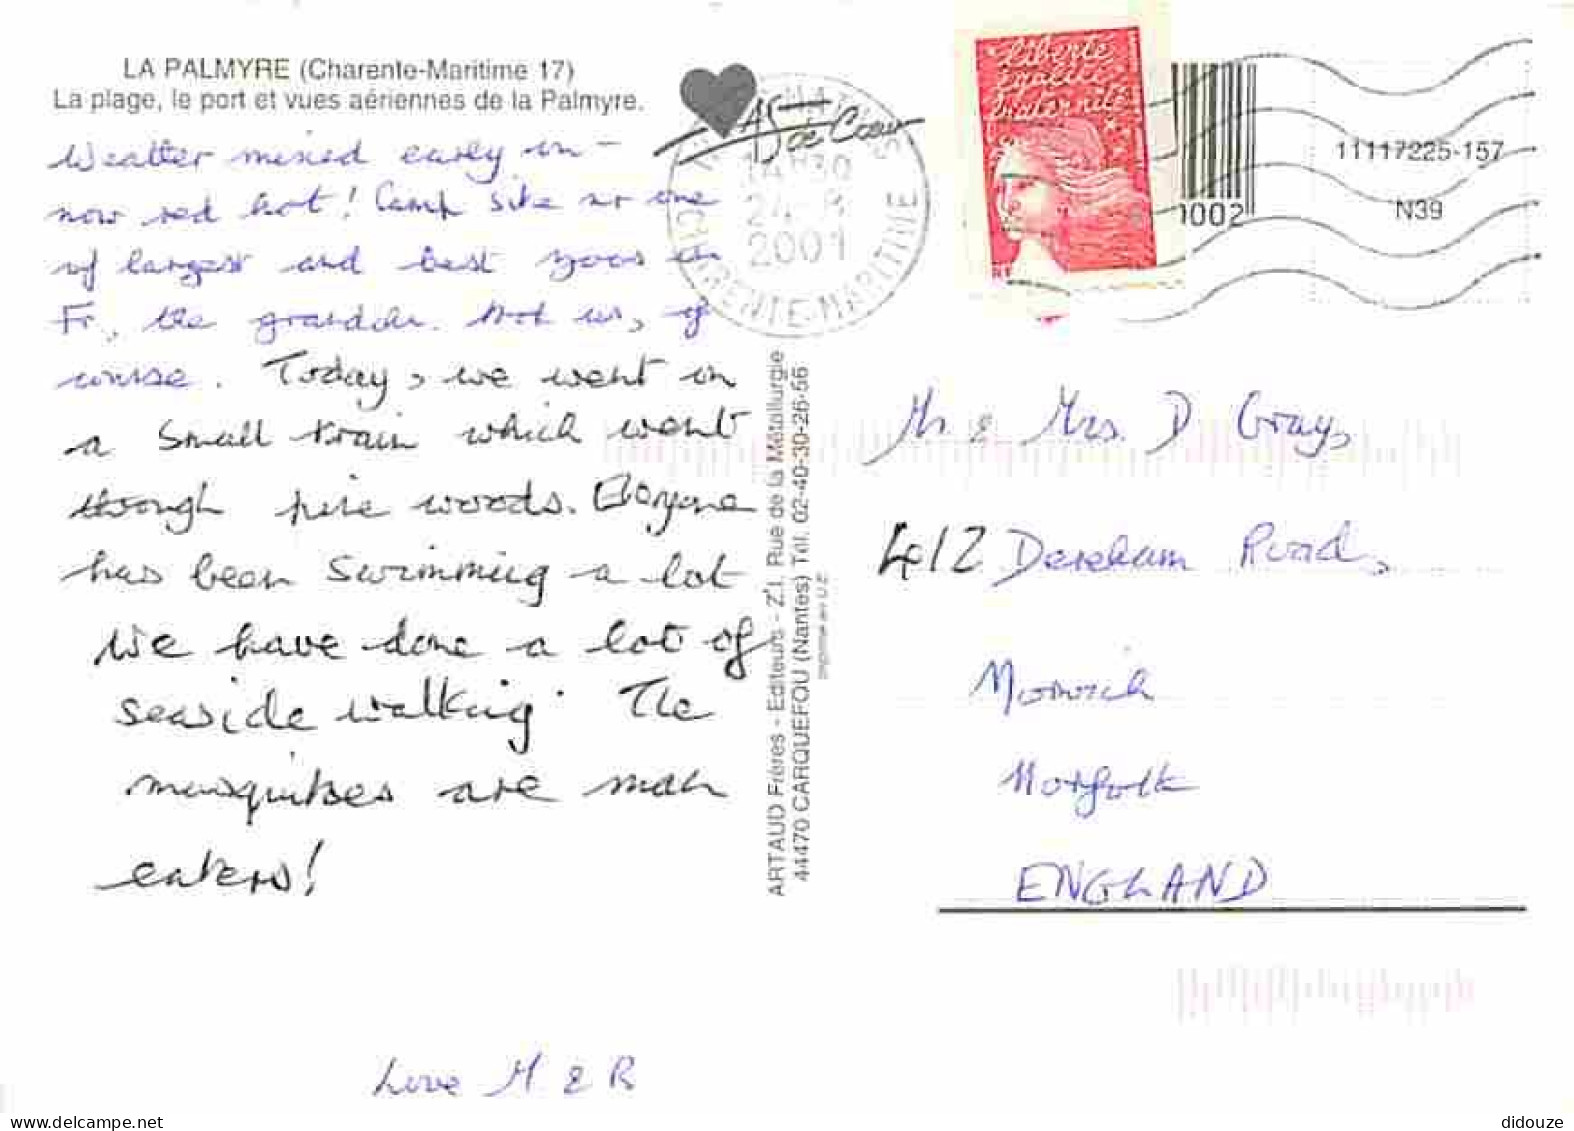 LA PALMYRE (Charente-Maritime 17)
La plage, le port et vues aériennes de la Palmyre.
Weather mixed early on -
now red hot! Camp site nr one
of largest and best zoos in
Fr., the grandchn. Not us, of
course. Today, we went in
a small train which went
through pine woods. Everyone
has been swimming a lot
We have done a lot of
seaside walking. The
mosquitoes are man
eaters!
Love M & R
As de Cœur
14H30
24-8
2001
CHARENTE-MARITIME
liberté
égalité
fraternité
RF
1002
11117225-157
N39
ARTAUD Frères - Editeurs - Z.I. Rue de la Métallurgie
44470 CARQUEFOU (Nantes) Tél. 02-40-30-26-56
Imprimé en U.E.
Mr. & Mrs. D Gray,
412 Dereham Road,
Norwich
Norfolk
ENGLAND
didouze